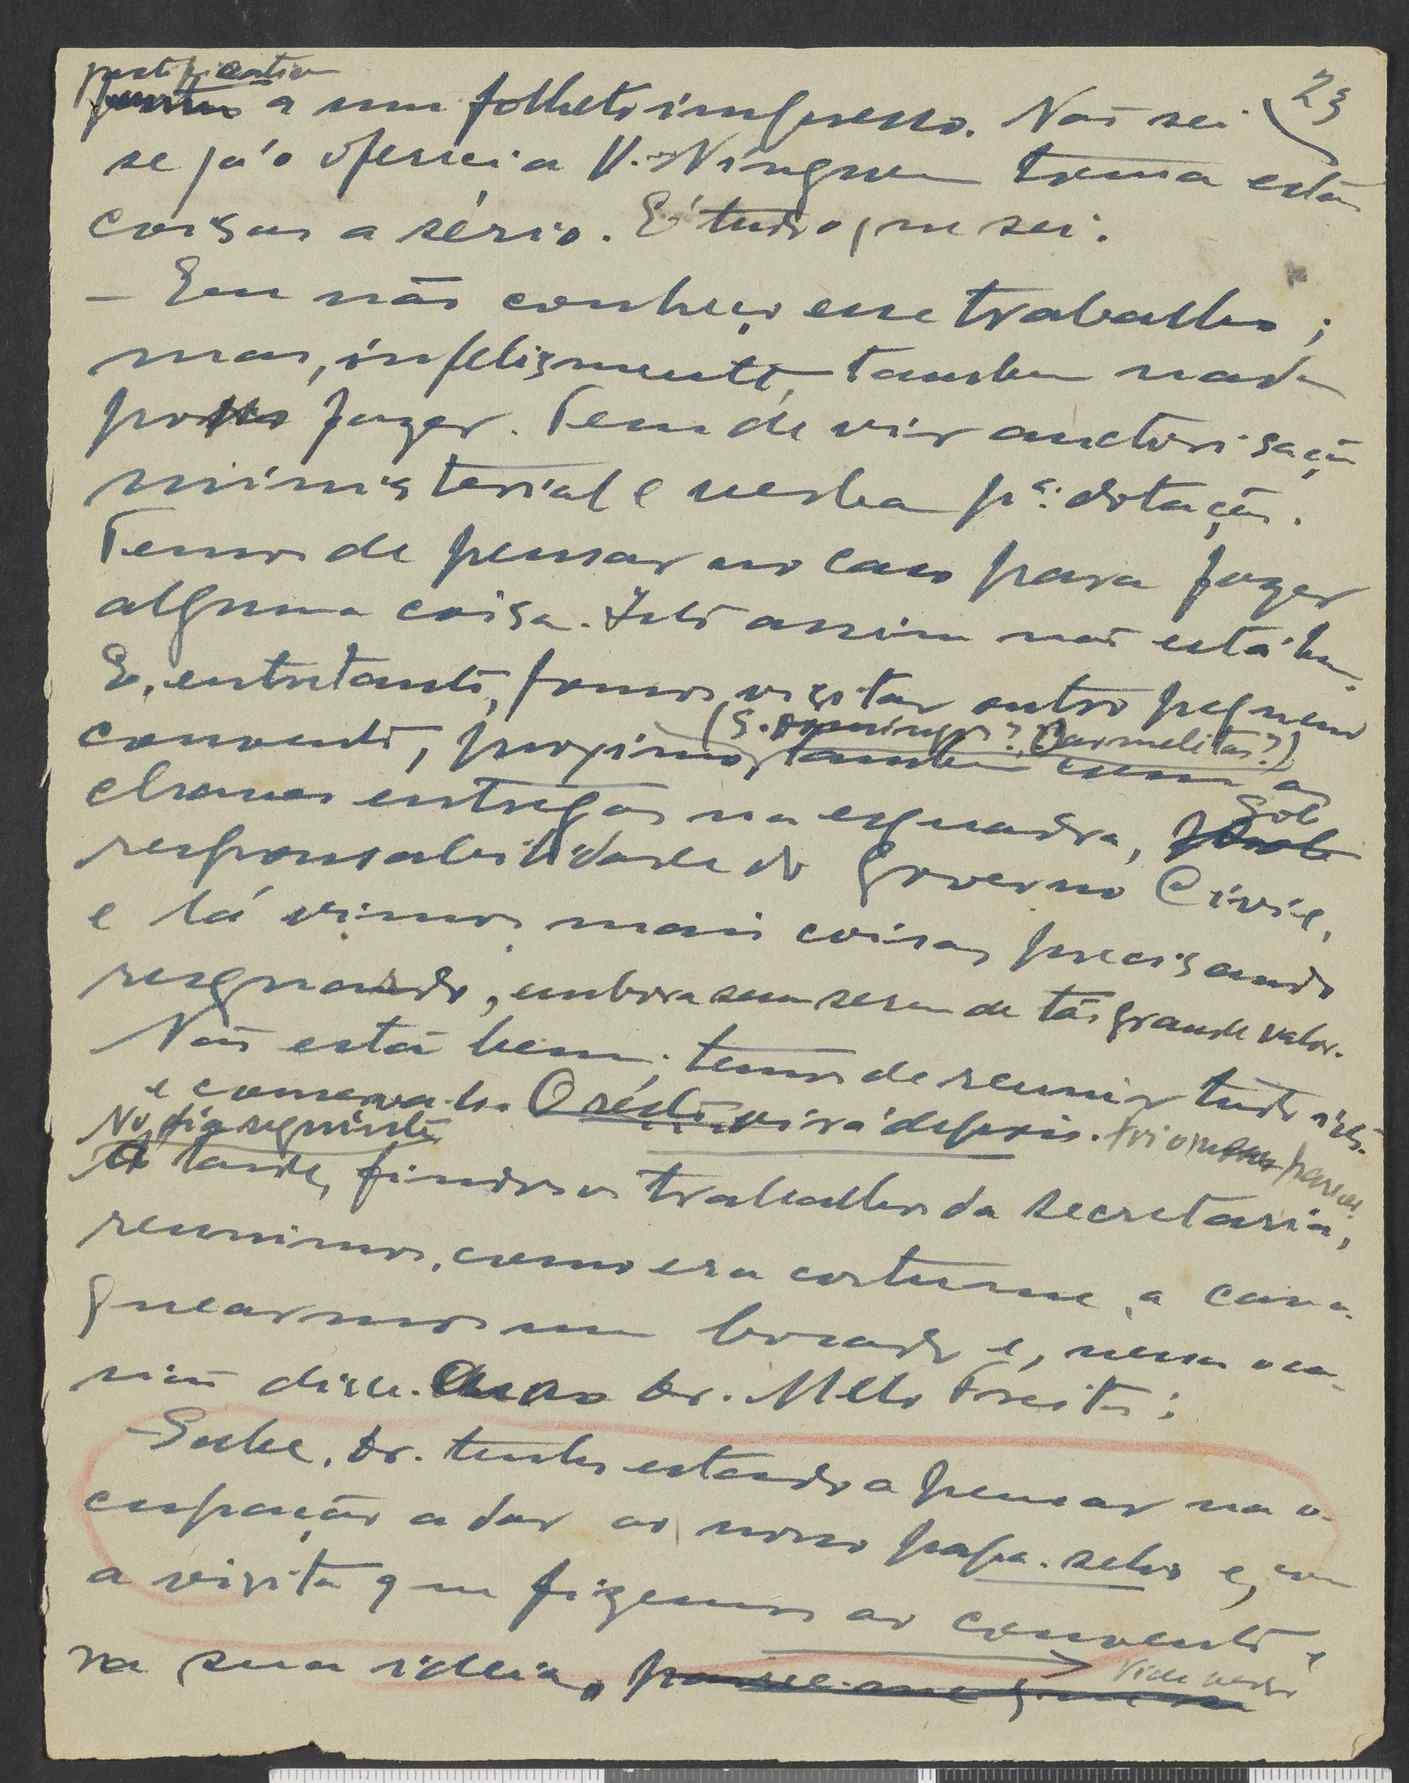 23
justificativa
a um folheto impresso. Não sei
se já o ofereci a V. Ninguem toma estas
coisas a sério. E' tudo que sei.
– Eu não conheço esse trabalho;
mas, infelizmente, tambem nada
posso fazer. Tem de vir auctorisação
ministerial e verba pª: dotação.
Temos de pensar no caso para fazer
alguma coisa. Isto assim não está bem.
E, entretanto, fomos visitar outro pequeno
(S. Domingos? Carmelitas?)
convento, proximo, tambem com as
chaves entregas na esquadra, sob
responsabilidade do Governo Civil,
e lá vimos mais coisas precisando
resguardo, embora sem serem de tão grande valor.
Não está bem; temos de reunir tudo isto
e conserva-lo. O résto virá depois.
No dia seguinte
Á tarde, findos os trabalhos da secretaria,
reunimos, como era costume, a cava-
quearmos um bocado e, nessa oca-
sião disse ao Dr. Melo Freitas:
– Sabe, Dr. tenho estado a pensar na o-
cupação a dar ao nosso papa-selos e, com
a visita que fizemos ao convento e
na sua ideia,
Vide verso